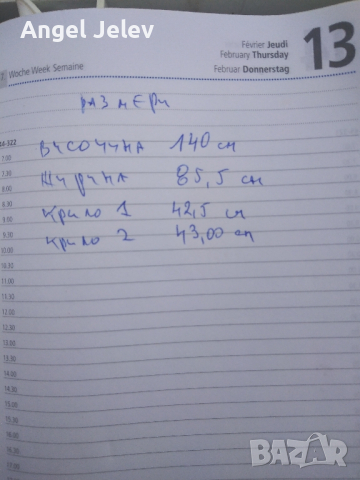 Angel Jelev
Février Jeudi
February Thursday
Februar Donnerstag
13
Woche Week Semaine
размери
височина 140 см
ширина 85,5 см
крило 1 42,5 см
крило 2 43,00 см
44-322
7.00
7.30
8.00
8.30
9.00
9.30
10.00
10.30
11.00
11.30
12.00
12.30
13.00
13.30
14.00
14.30
15.00
15.30
16.00
BAZAR